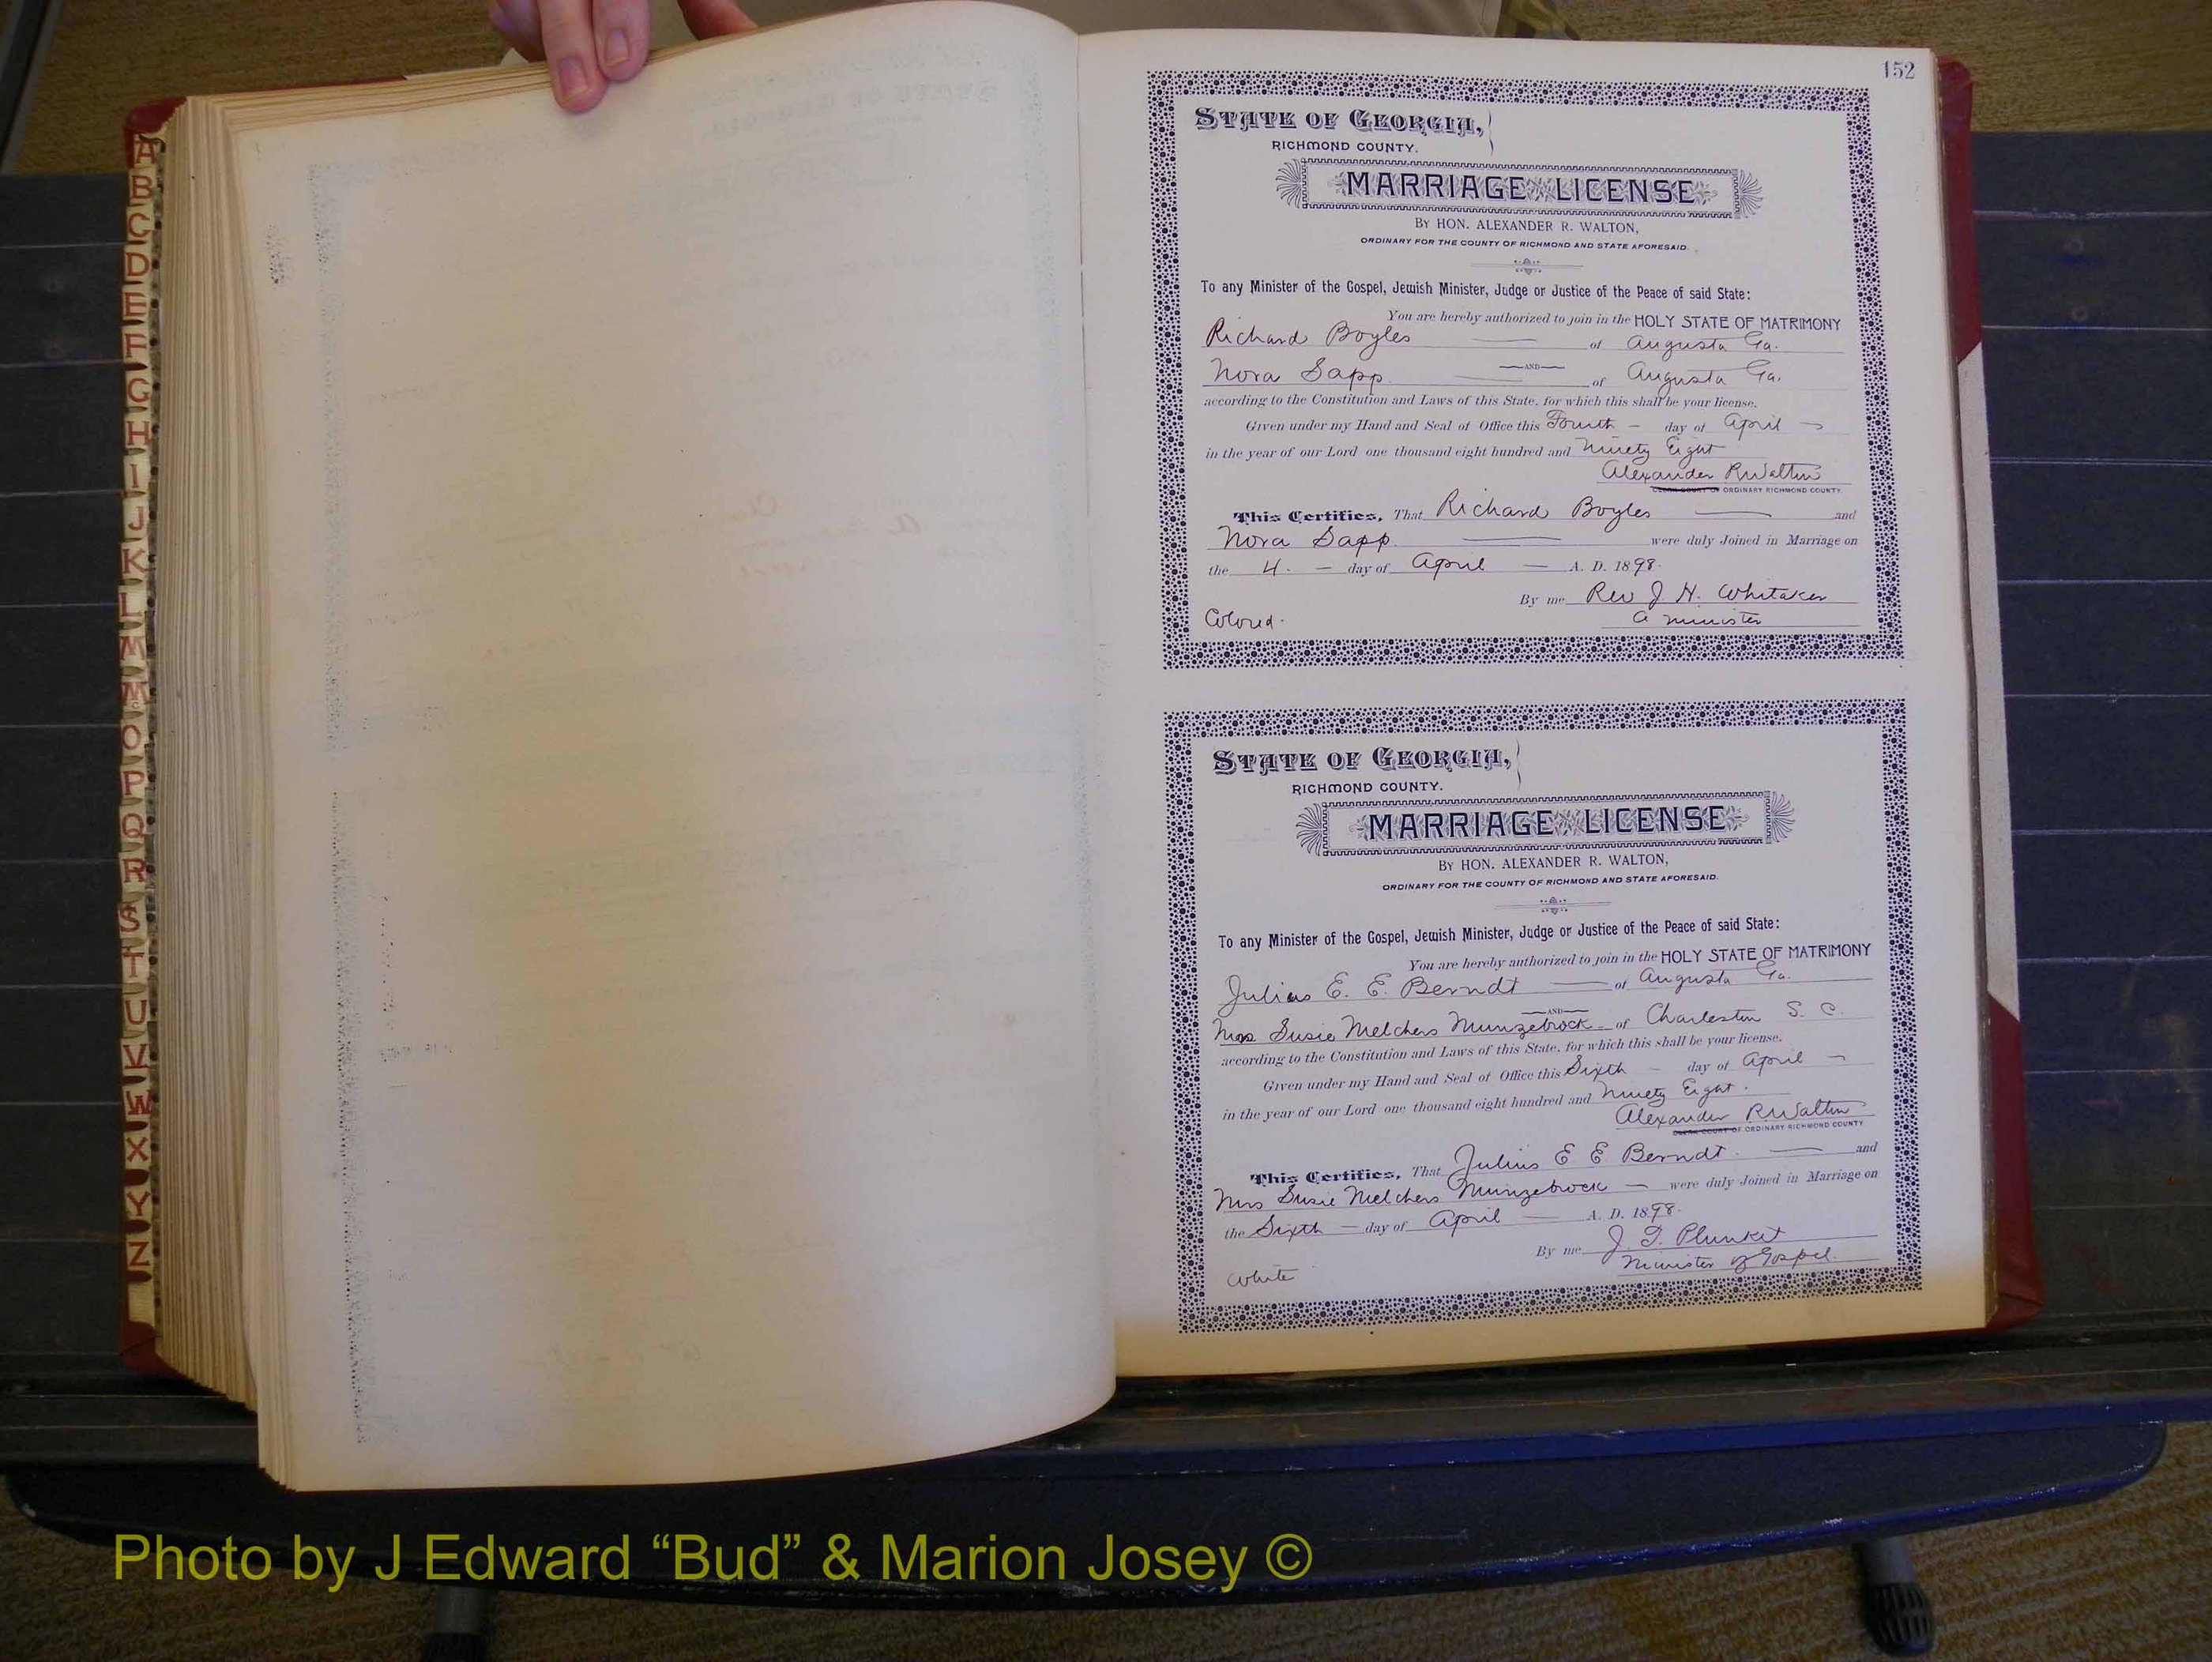 A
B
C
D
E
F
G
H
I
J
K
L
M
Mc
O
P
Q
R
S
T
U
V
W
X
Y
Z
152
STATE OF GEORGIA,
RICHMOND COUNTY.
MARRIAGE LICENSE
BY HON. ALEXANDER R. WALTON,
ORDINARY FOR THE COUNTY OF RICHMOND AND STATE AFORESAID.
To any Minister of the Gospel, Jewish Minister, Judge or Justice of the Peace of said State:
You are hereby authorized to join in the HOLY STATE OF MATRIMONY
Richard Boyles of Augusta Ga.
AND
Nora Sapp of Augusta Ga.
according to the Constitution and Laws of this State, for which this shall be your license.
Given under my Hand and Seal of Office this Fourth day of April
in the year of our Lord one thousand eight hundred and Ninety Eight
Alexander R Walton
CLERK COURT OF ORDINARY RICHMOND COUNTY.
This Certifies, That Richard Boyles and
Nora Sapp were duly Joined in Marriage on
the 4. day of April A. D. 1898.
By me Rev J. H. Whitaker
Colored. a minister
STATE OF GEORGIA,
RICHMOND COUNTY.
MARRIAGE LICENSE
BY HON. ALEXANDER R. WALTON,
ORDINARY FOR THE COUNTY OF RICHMOND AND STATE AFORESAID.
To any Minister of the Gospel, Jewish Minister, Judge or Justice of the Peace of said State:
You are hereby authorized to join in the HOLY STATE OF MATRIMONY
Julius E. E. Berndt of Augusta Ga.
AND
Mrs Susie Melchers Munzebrock of Charleston S. C.
according to the Constitution and Laws of this State, for which this shall be your license.
Given under my Hand and Seal of Office this Sixth day of April
in the year of our Lord one thousand eight hundred and Ninety Eight.
Alexander R Walton
CLERK COURT OF ORDINARY RICHMOND COUNTY
This Certifies, That Julius E E Berndt. and
Mrs Susie Melchers Munzebrock were duly Joined in Marriage on
the Sixth day of April A. D. 1898.
By me J. T. Plunket
White Minister of Gospel.
Photo by J Edward “Bud” & Marion Josey ©